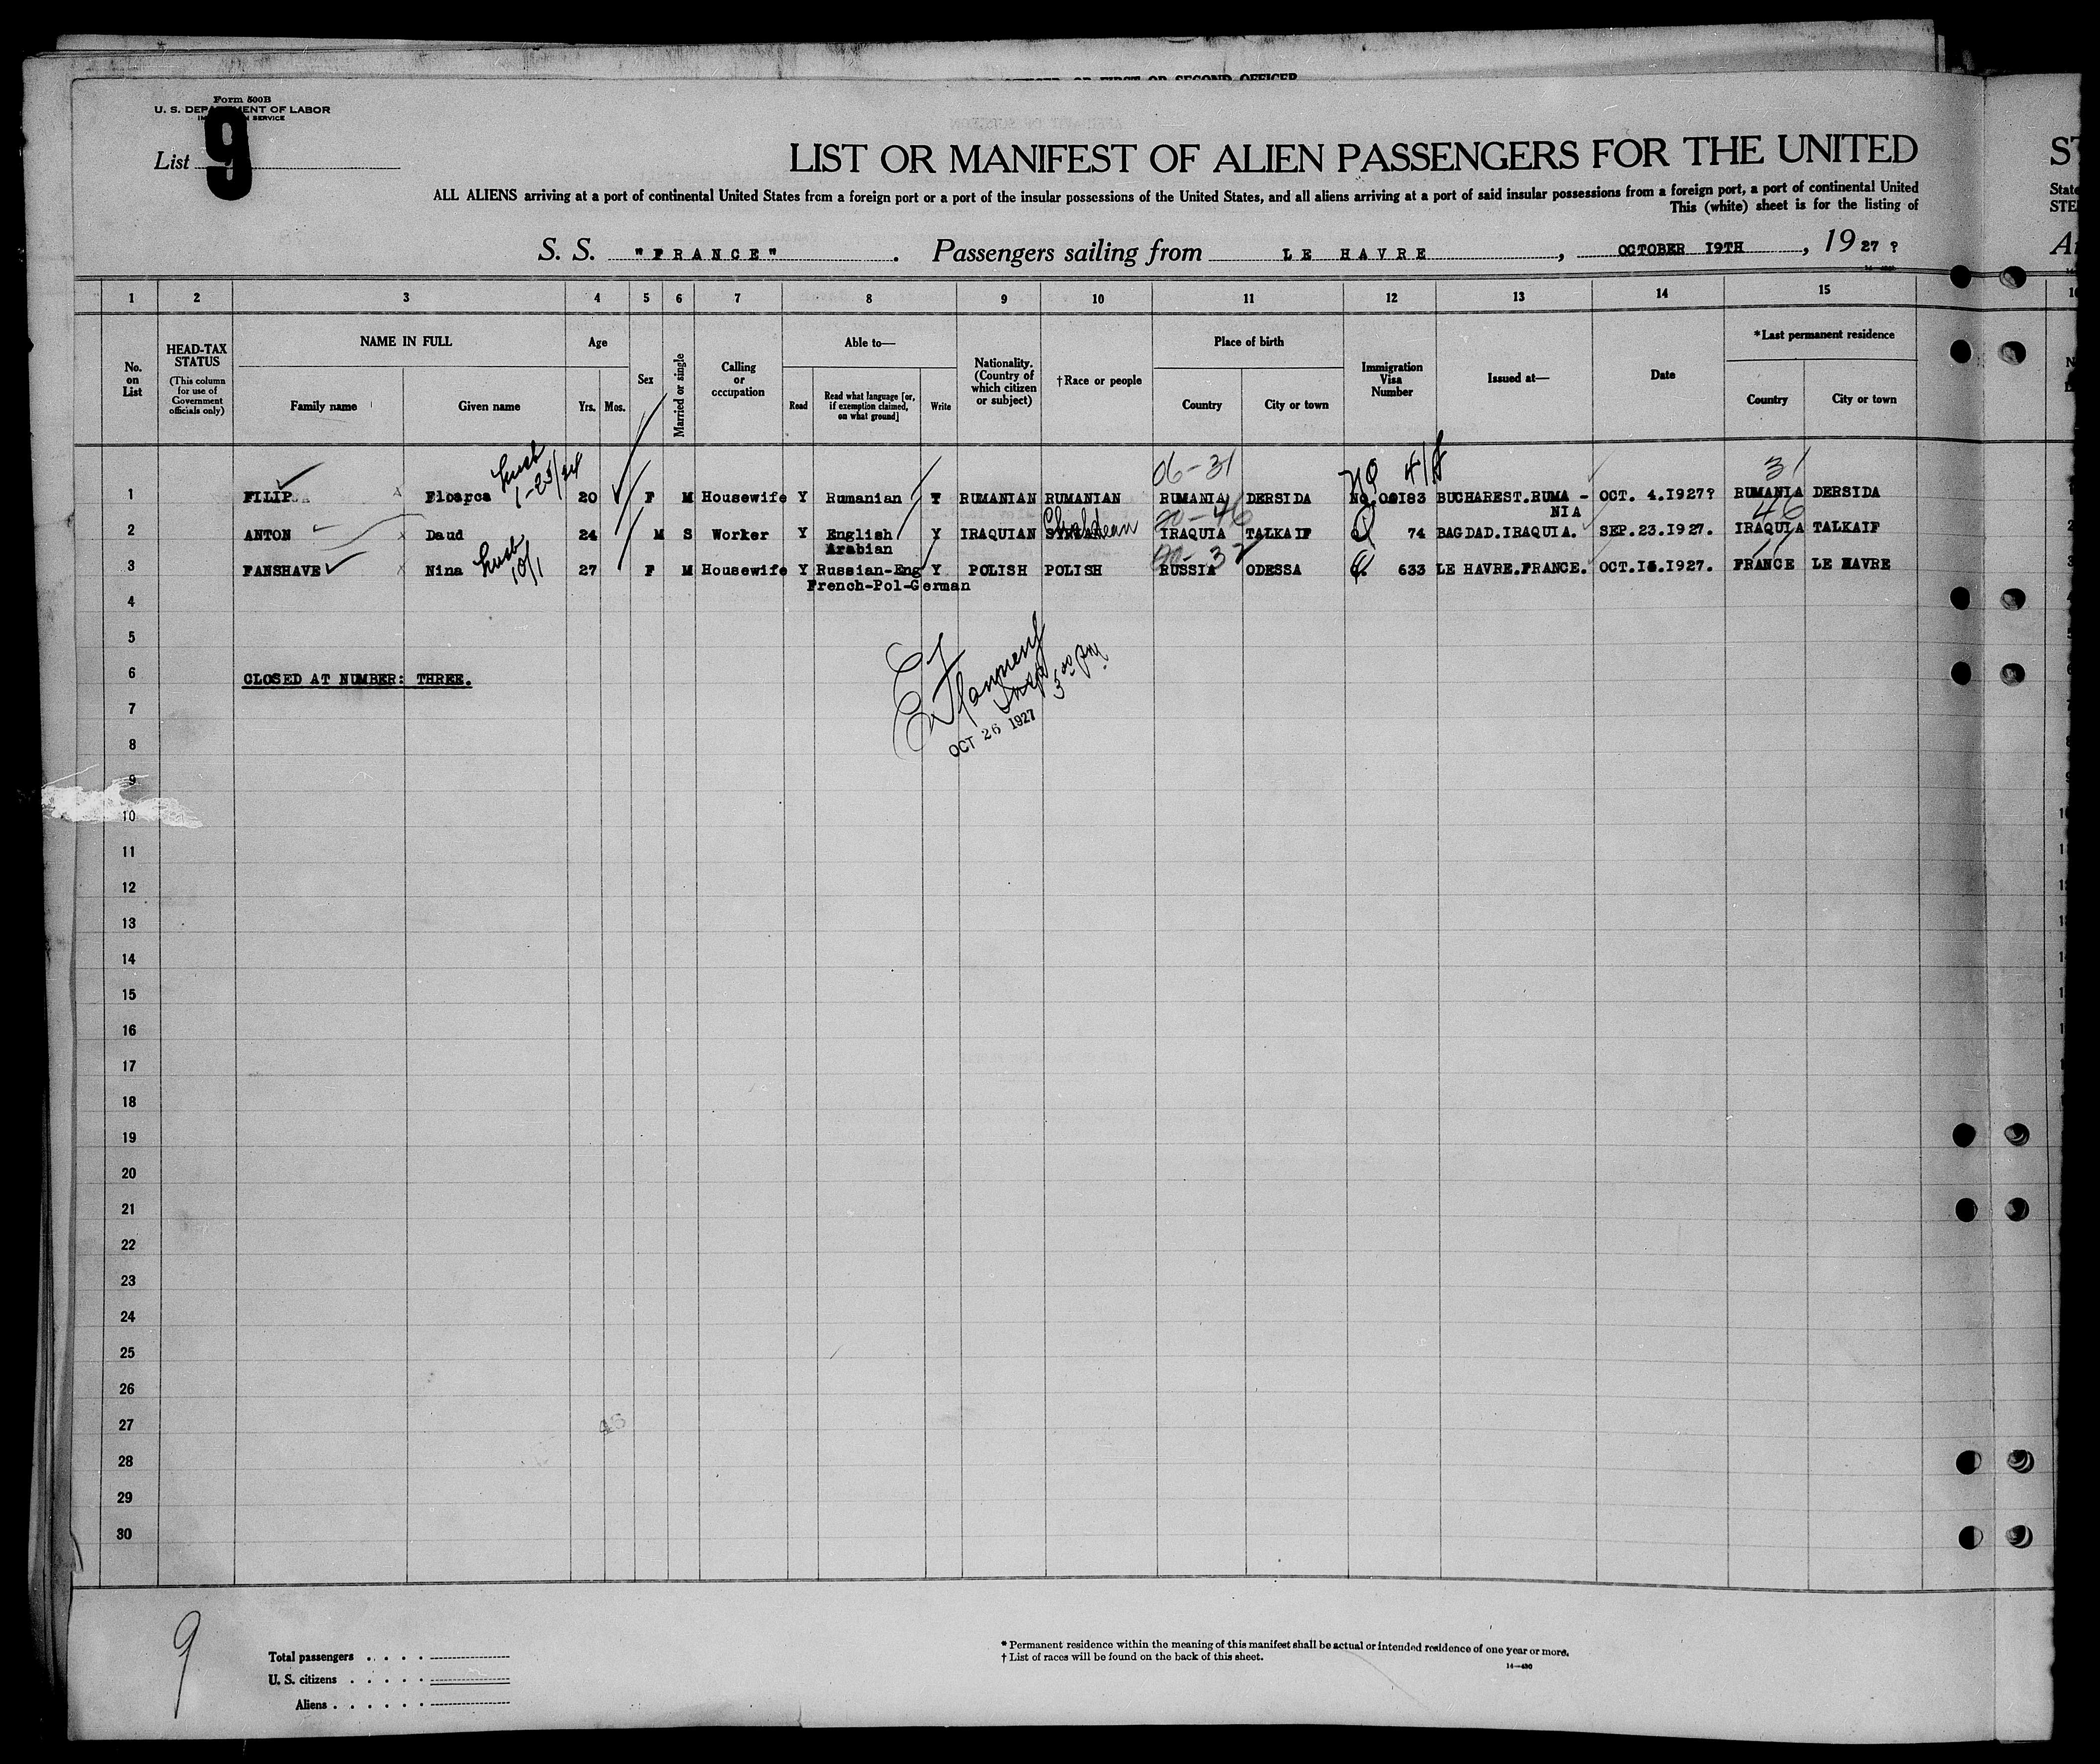 OFFICER, OR FIRST OR SECOND OFFICER
Form 500B
U. S. DEPARTMENT OF LABOR
IMMIGRATION SERVICE
List 9
LIST OR MANIFEST OF ALIEN PASSENGERS FOR THE UNITED ST
ALL ALIENS arriving at a port of continental United States from a foreign port or a port of the insular possessions of the United States, and all aliens arriving at a port of said insular possessions from a foreign port, a port of continental United State
This (white) sheet is for the listing of STE
S. S. "FRANCE" . Passengers sailing from LE HAVRE , OCTOBER I9TH , 19 27 ?
1 2 3 4 5 6 7 8 9 10 11 12 13 14 15
No. on List
HEAD-TAX STATUS (This column for use of Government officials only)
NAME IN FULL
Family name Given name
Age
Yrs. Mos.
Sex
Married or single
Calling or occupation
Able to—
Read Read what language [or, if exemption claimed, on what ground] Write
Nationality. (Country of which citizen or subject)
†Race or people
Place of birth
Country City or town
Immigration Visa Number
Issued at—
Date
*Last permanent residence
Country City or town
husb 1-23/24 06-31 NQ 418 31
1 FILIP Floarea 20 F M Housewife Y Rumanian Y RUMANIAN RUMANIAN RUMANIA DERSIDA No. 00I83 BUCHAREST.RUMA - OCT. 4.I927? RUMANIA DERSIDA
NIA
Chaldean 46 46
2 ANTON Daud 24 M S Worker Y English Y IRAQUIAN SYRIAN IRAQUIA TALKAIF Q 74 BAGDAD.IRAQUIA. SEP.23.I927. IRAQUIA TALKAIF
Arabian
husb 10/1
3 FANSHAVE Nina 27 F M Housewife Y Russian-Eng Y POLISH POLISH RUSSIA ODESSA 633 LE HAVRE.FRANCE. OCT.I5.I927. FRANCE LE HAVRE
French-Pol-German
4
5
6 CLOSED AT NUMBER: THREE.
Flannery
Insp
5 00 PM
OCT 26 1927
7
8
9
10
11
12
13
14
15
16
17
18
19
20
21
22
23
24
25
26
27
28
29
30
9
Total passengers . . . .
U. S. citizens . . . . .
Aliens . . . . . .
* Permanent residence within the meaning of this manifest shall be actual or intended residence of one year or more.
† List of races will be found on the back of this sheet.
14—430